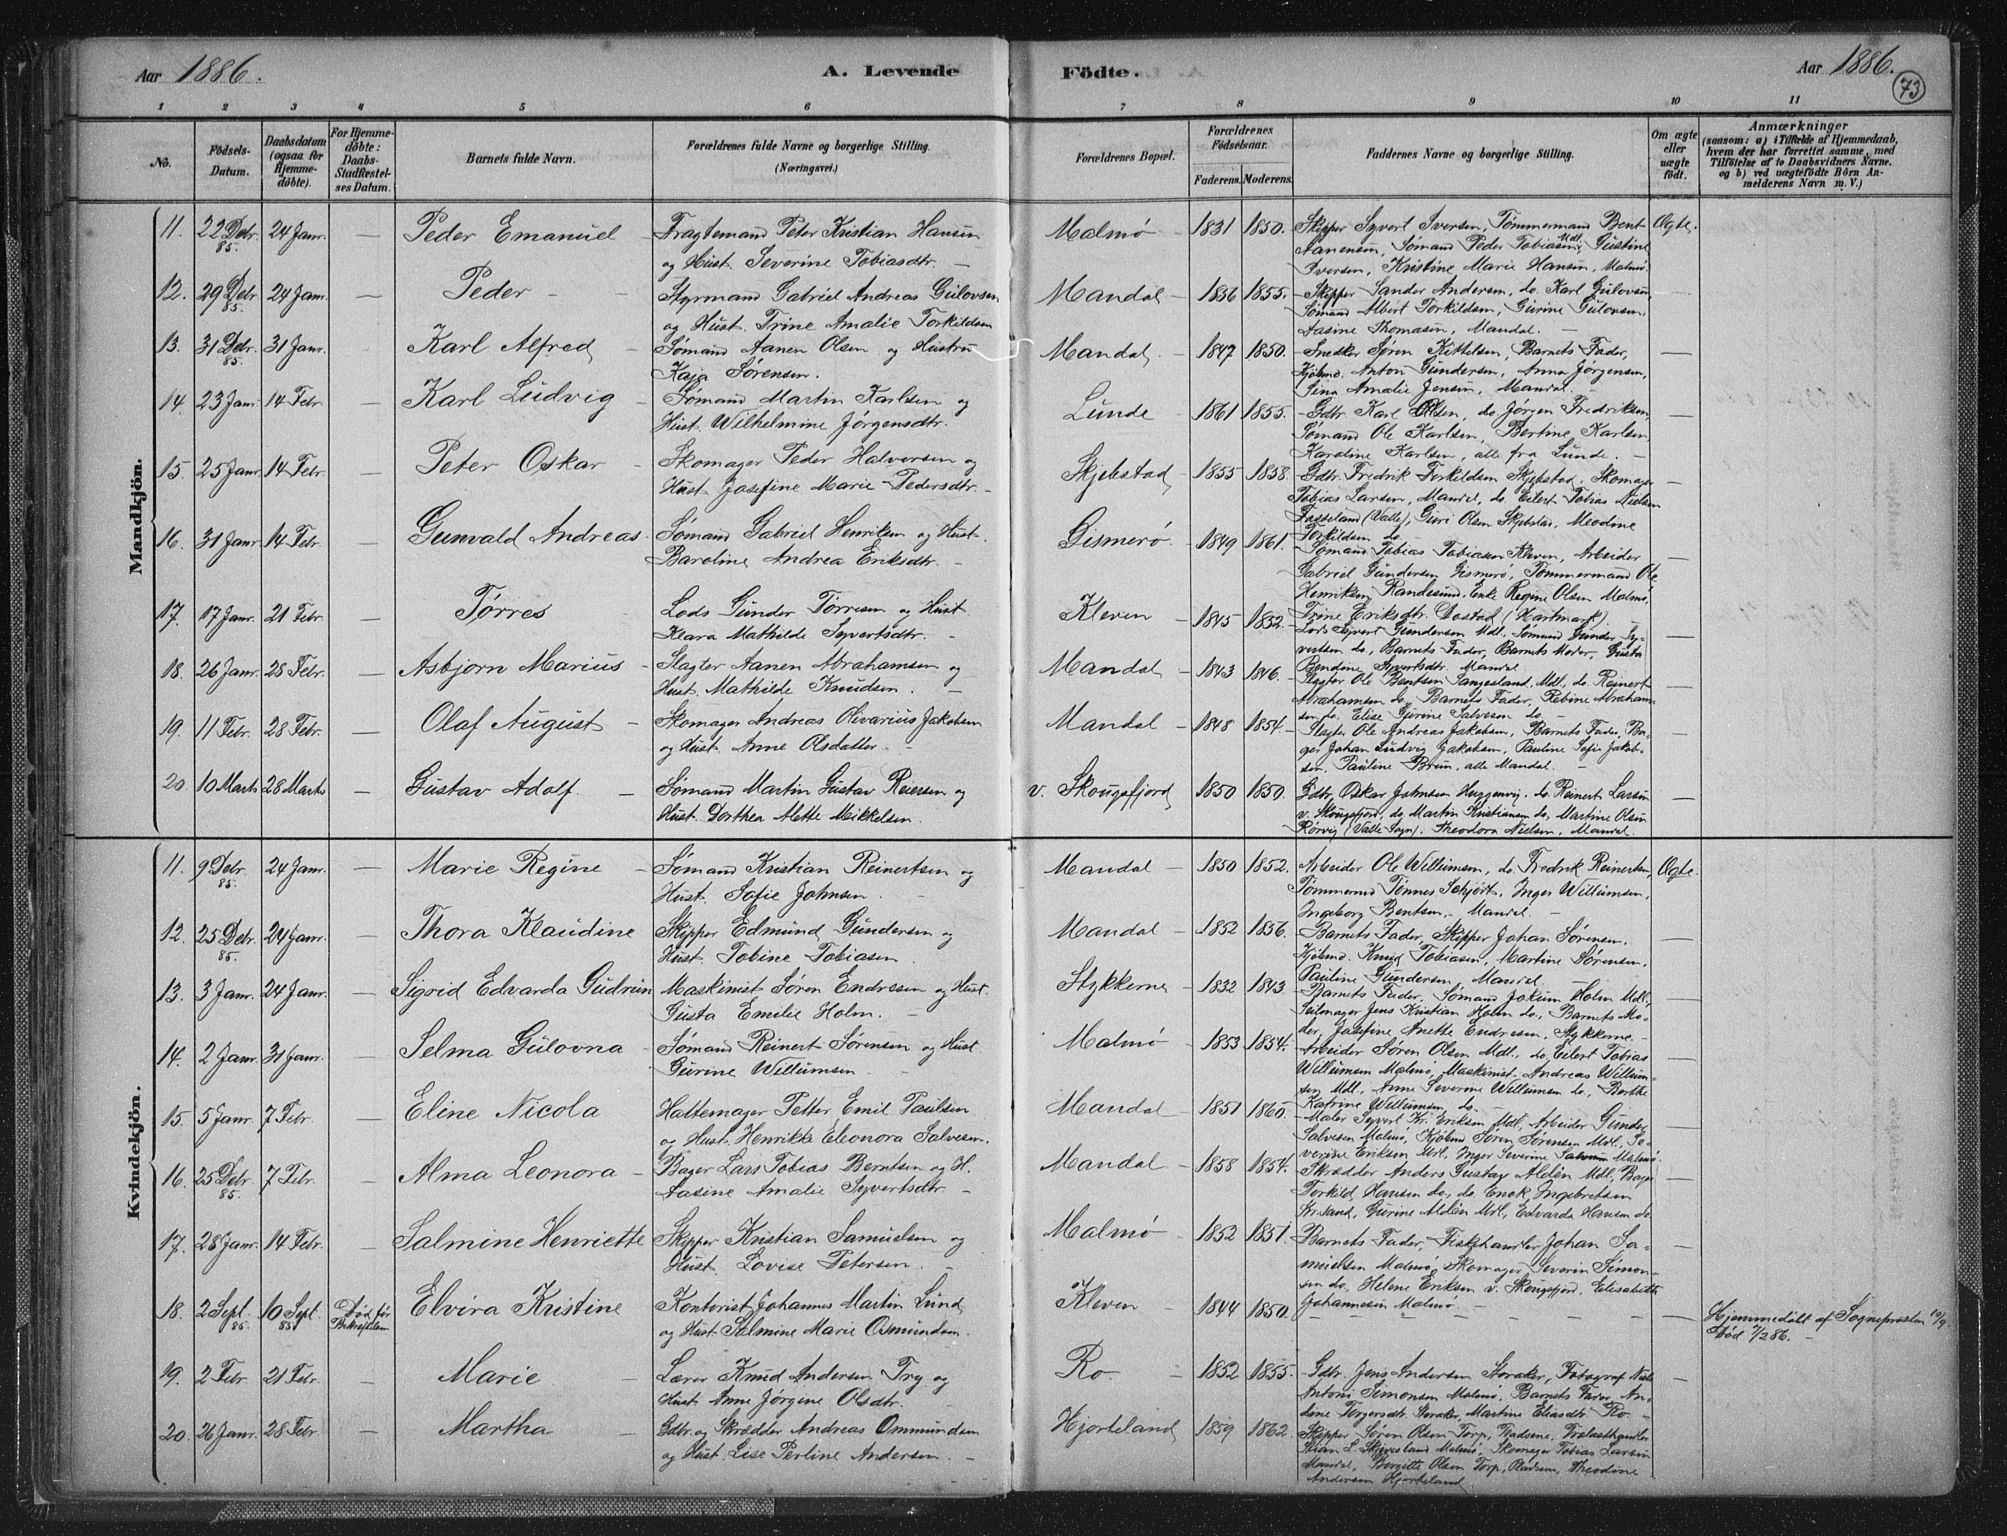 Aar 1886.
A. Levende Födte.
Aar 1886.
73
1 2 3 4 5 6 7 8 9 10 11
No.
Födsels-Datum.
Daabsdatum (ogsaa for Hjemmedöbte).
For Hjemmedöbte: Daabs-Stadfæstelses Datum.
Barnets fulde Navn.
Forældrenes fulde Navne og borgerlige Stilling. (Næringsvei.)
Forældrenes Bopæl.
Forældrenes Födselsaar.
Faderens. Moderens.
Faddernes Navne og borgerlige Stilling.
Om ægte eller uægte födt.
Anmærkninger
(saasom: a) i Tilfælde af Hjemmedaab, hvem der har forrettet samme, med Tilföielse af to Daabsvidners Navne. og b) ved uægtefödte Börn Anmelderens Navn m. V.)
Mandkjön.
11. 22 Debr. 85. 24 Janr. — Peder Emanuel – Fragtemand Peter Kristian Hansen og Hust. Severine Tobiasdtr. – Malmø – 1831 1850. Skipper Syvert Iversen, Tømmermand Bent Aanensen, Sømand Peder Tobiasen, Mdl., Gustine Iversen, Kristine Marie Hansen, Malmø. Ægte.
12. 29 Debr. 85. 24 Jan. — Peder – Styrmand Gabriel Andreas Gulovsen og Hust. Trine Amalie Torkildsen Mandal – 1856 1855. Skipper Sander Andersen, do. Karl Gulovsen Sømand Albert Torkildsen, Gurine Gulovsen. Aasine Thomasen, Mandal. —
13. 31 Debr. 85. 31 Janr. — Karl Alfred – Sømand Aanen Olsen og Hustru Kaja Sørensen. Mandal. – 1847 1850. Snedker Søren Kittelsen, Barnets Fader, Kjøbmd. Anton Gundersen, Anna Jørgensen, Sina Amalie Jensen, Mandal. —
14. 23 Janr. 14 Febr. — Karl Ludvig – Sømand Martin Karlsen og Hust. Wilhelmine Jørgensdtr. Lunde – 1861 1855. Gdbr. Karl Olsen, do. Jørgen Fredriksen, Sømand Ole Karlsen, Bertine Karlsen Karoline Karlsen, alle fra Lunde. —
15. 25 Janr. 14 Febr. — Peter Oskar – Skomager Peder Halvorsen og Hust. Josefine Marie Pedersdtr. – Skjebstad 1855 1858. Gdbr. Fredrik Torkildsen Skjebstad, Skomager Tobias Larsen, Mandal, do. Eilert Tobias Nielsen (Valle), Guri Olsen Skjebstad, Torkildsen do. —
16. 31 Janr. 14 Febr. — Gunvald Andreas – Sømand Gabriel Henriksen og Hust. Baroline Andrea Eriksdtr. – Gismerø – 1849 1861. Sømand Tobias Tobiassen Kleven, Arbeider Gabriel Gundersen Gismerø, Tømmermand Ole Henriksen Randesund, Enke Regine Olsen Malmø, Trine Eriksdtr. (Hartmark). —
17. 17 Janr. 21 Febr. — Tørres – Lods Gunder Tørresen og Hust. Klara Mathilde Syvertsdtr. – Kleven – 1845 1852. Lods Syvert Gundersen Mdl. Sømand Gunder Syvertsen do., Barnets Fader, Barnets Moder, Gusta Bendine Syvertsdtr. Mandal. —
18. 26 Janr. 28 Febr. — Asbjørn Marius – Slagter Aanen Abrahamsen og Hust. Mathilde Knudsen. – Mandal – 1843 1846. Slagter Ole Bentsen Sangesland, Mdl., do. Reinert Abrahamsen do., Barnets Fader, Abrahamsen do., Elise Gurine Salvesen do. —
19. 11 Febr. 28 Febr. — Olaf August – Skomager Andreas Olivarius Jakobsen og Hust. Anne Olsdatter. – Mandal – 1848 1854. Slagter Ole Andreas Jakobsen, Barnets Fader, Bager Johan Ludvig Jakobsen, Pauline Sofie Jakobsen, Pauline Brun, alle Mandal. —
20. 10 Marts 28 Marts — Gustav Adolf. – Sømand Martin Gustav Reiersen og Hust. Dorthea Mette Mikkelsen. v. Skougsfjord 1850 1850. Gdbr. Oskar Johnsen Huggenvig, do. Reinert Larsen v. Skougsfjord, do. Martin Kristiansen do., Martine Olsen Rørvig (Valle Sogn), Theodora Nielsen, Mandal. —
Kvindekjön.
11. 9 Debr. 85. 24 Jan. — Marie Regine – Sømand Kristian Reinertsen og Hust. Sofie Johnsen. Mandal – 1850 1852. Arbeider Ole Willumsen, do. Fredrik Reinertsen, Tømmermd. Tønnes Schjøtt, Inger Willumsen, Ingeborg Bentsen, Mandal. — Ægte.
12. 25 Debr. 85. 24 Janr. — Thora Klaudine Skipper Edmund Gundersen og Hust. Tobine Tobiasen. Mandal – 1852 1856. Barnets Fader, Skipper Johan Sørensen. Kjøbmd. Knud Tobiasen, Martine Sørensen, Pauline Gundersen, Mandal. —
13. 3 Janr. 24 Janr. — Sigrid Edvarda Gudrun Maskinist Søren Endresen og Hust. Gusta Emilie Holm. – Stykkerne – 1832 1843. Barnets Fader, Sømand Jokum Holm Mdl., Seilmager Jens Kristian Holm do., Barnets Moder, Josefine Anette Endresen, Stykkerne. —
14. 2 Janr. 31 Janr. — Selma Gulovna – Sømand Reinert Sørensen og Hust. Gurine Willumsen. Malmø – 1853 1854. Arbeider Søren Olsen Mdl., do. Eilert Tobias Willumsen Malmø, Maskinist Andreas Willumsen Mdl., Anne Severine Willumsen do., Berthe Katrine Willumsen do. —
15. 5 Janr. 7 Febr. — Eline Nicola Hattemager Petter Emil Paulsen og Hust. Henrikke Eleonora Salvesen. Mandal – 1851 1860. Maler Syvert Kr. Eriksen Mdl., Arbeider Gunder Salvesen Malmø, Kjøbmd. Søren Sørensen Mdl., Severine Eriksen Mdl., Inger Severine Malmø. —
16. 25 Debr. 85. 7 Febr. — Alma Leonora – Bager Lars Tobias Berntsen og H. Aasine Amalie Syvertsdtr. – Mandal – 1858 1854. Skrædder Anders Gustav Aldén Mdl., Bager Torkild Hansen do., do. Enok Ingebretsen Kr.sand, Gurine Aldén Mdl., Edvarda Hansen do. —
17. 28 Janr. 14 Febr. — Salmine Henriette Skipper Kristian Samuelsen og Hust. Lovise Petersen. – Malmø – 1852 1851. Barnets Fader, Fiskehandler Johan Samuelsen Malmø, Skomager Severin Simonsen do., Helene Eriksen v. Skougsfjord, Elisabeth Johannesen Malmø. —
18. 2 Sept. 85. 10 Sept. 85. Død før Bekræftelsen Elvira Kristine Kontorist Johannes Martin Lund og Hust. Salmine Marie Osmundsen. Kleven – 1844 1850. — Hjemmedøbt af Sognepresten 10/9. Død 7/2 86. –
19. 2 Febr. 21 Febr. — Marie – Lærer Knud Andersen Try og Hust. Anne Jørgine Olsdtr. – Ro – 1852 1855. Gdbr. Jens Andersen Storaker, Fotograf Nils Antoni Simonsen Malmø, Barnets Fader, Andine Torgersdtr. Storaker, Martine Eliasdtr. Ro —
20. 26 Janr. 28 Febr. — Martha – Gdbr. og Skrædder Andreas Ommundsen og Hust. Lise Perline Andersen. – Hjorteland 1859 1862. Skipper Søren Olsen Torp, Trælasthandler Stian L. Skjevesland Malmø, Skomager Tobias Larsen Mandal, Birgitte Olsen Torp, Theodine Andersen Hjorteland —